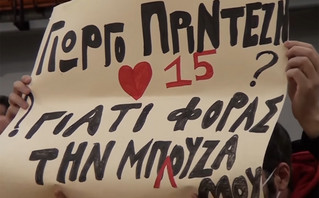 ΓΙΩΡΓΟ ΠΡΙΝΤΕΖΗ
♥ 15 ?
? ΓΙΑΤΙ ΦΟΡΑΣ
ΤΗΝ ΜΠΛΟΥΖΑ
ΜΟΥ